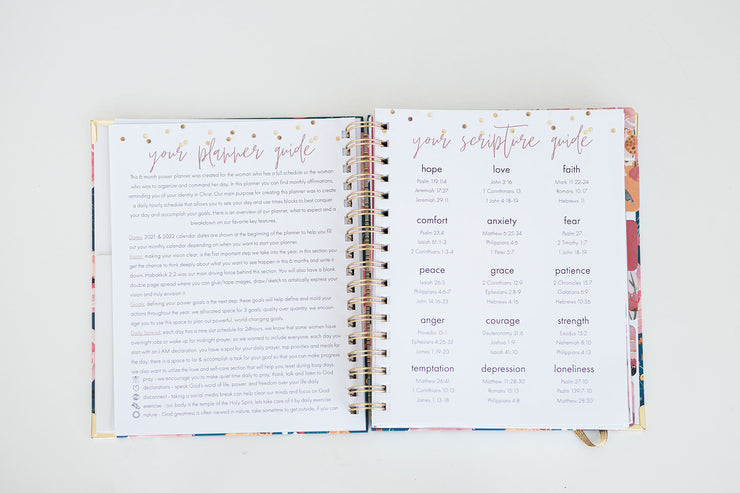 your planner guide
This 6 month power planner was created for the woman who has a full schedule or the woman
who was to organize and command her day. In this planner you can find monthly affirmations,
reminding you of your identity in Christ. Our main purpose for creating this planner was to create
a daily hourly schedule that allows you to see your day and use times blocks to best conquer
your day and accomplish your goals. Here is an overview of our planner, what to expect and a
breakdown on our favorite key features.
Dates: 2021 & 2022 calendar dates are shown at the beginning of the planner to help you fill
out your monthly calendar depending on when you want to start your planner.
Vision: making your vision clear, is the first important step we take into the year, in this section you
get the chance to think deeply about what you want to see happen in this 6 months and write it
down. Habakkuk 2:2 was our main driving force behind this section. You will also have a blank
double page spread where you can glue/tape images, draw/sketch to artistically express your
vision and truly envision it.
Goals: defining your power goals is the next step, these goals will help define and mold your
actions throughout the year, we allocated space for 3 goals, quality over quantity, we encour-
age you to use this space to plan out powerful, world-changing goals.
Daily Spread: each day has a time slot schedule for 24hours, we know that some women have
overnight jobs or wake up for midnight prayer, so we wanted to include everyone. each day you
start with an I AM declaration, you have a spot for your daily prayer, top priorities and meals for
the day, there is a space to list & accomplish a task for your goal so that you can make progress.
we also want to utilize the love and self-care section that will help you reset during busy days.
pray - we encourage you to make quiet time daily to pray, thank, talk and listen to God
declarations - speak God's word of life, power, and freedom over your life daily
disconnect - taking a social media break can help clear our minds and focus on God
exercise - our body is the temple of the Holy Spirit, lets take care of it by daily exercise
nature - God greatness is often viewed in nature, take sometime to get outside, if you can
your scripture guide
hope love faith
Psalm 119:114 John 3:16 Mark 11:22-24
Jeremiah 17:7 1 Corinthians 13 Romans 10:17
Jeremiah 29:11 1 John 4:18-19 Hebrews 11
comfort anxiety fear
Psalm 23:4 Matthew 6:25-34 Psalm 27
Isaiah 61:1-3 Philippians 4:6 2 Timothy 1:7
2 Corinthians 1:3-4 1 Peter 5:7 1 John 4:18-19
peace grace patience
Isaiah 26:3 2 Corinthians 12:9 2 Chronicles 15:7
Philippians 4:6-7 Ephesians 2:8-9 Galatians 6:9
John 14:16-33 Hebrews 4:16 Hebrews 10:36
anger courage strength
Proverbs 15:1 Deuteronomy 31:6 Exodus 15:2
Ephesians 4:26 Joshua 1:9 Nehemiah 8:10
James 1:19-20 Isaiah 41:10 Philippians 4:13
temptation depression loneliness
Matthew 26:41 Matthew 11:28-30 Psalm 27:10
1 Corinthians 10:13 Romans 15:13 Psalm 139:7-10
James 1:13-18 Philippians 4:8 Matthew 28:20